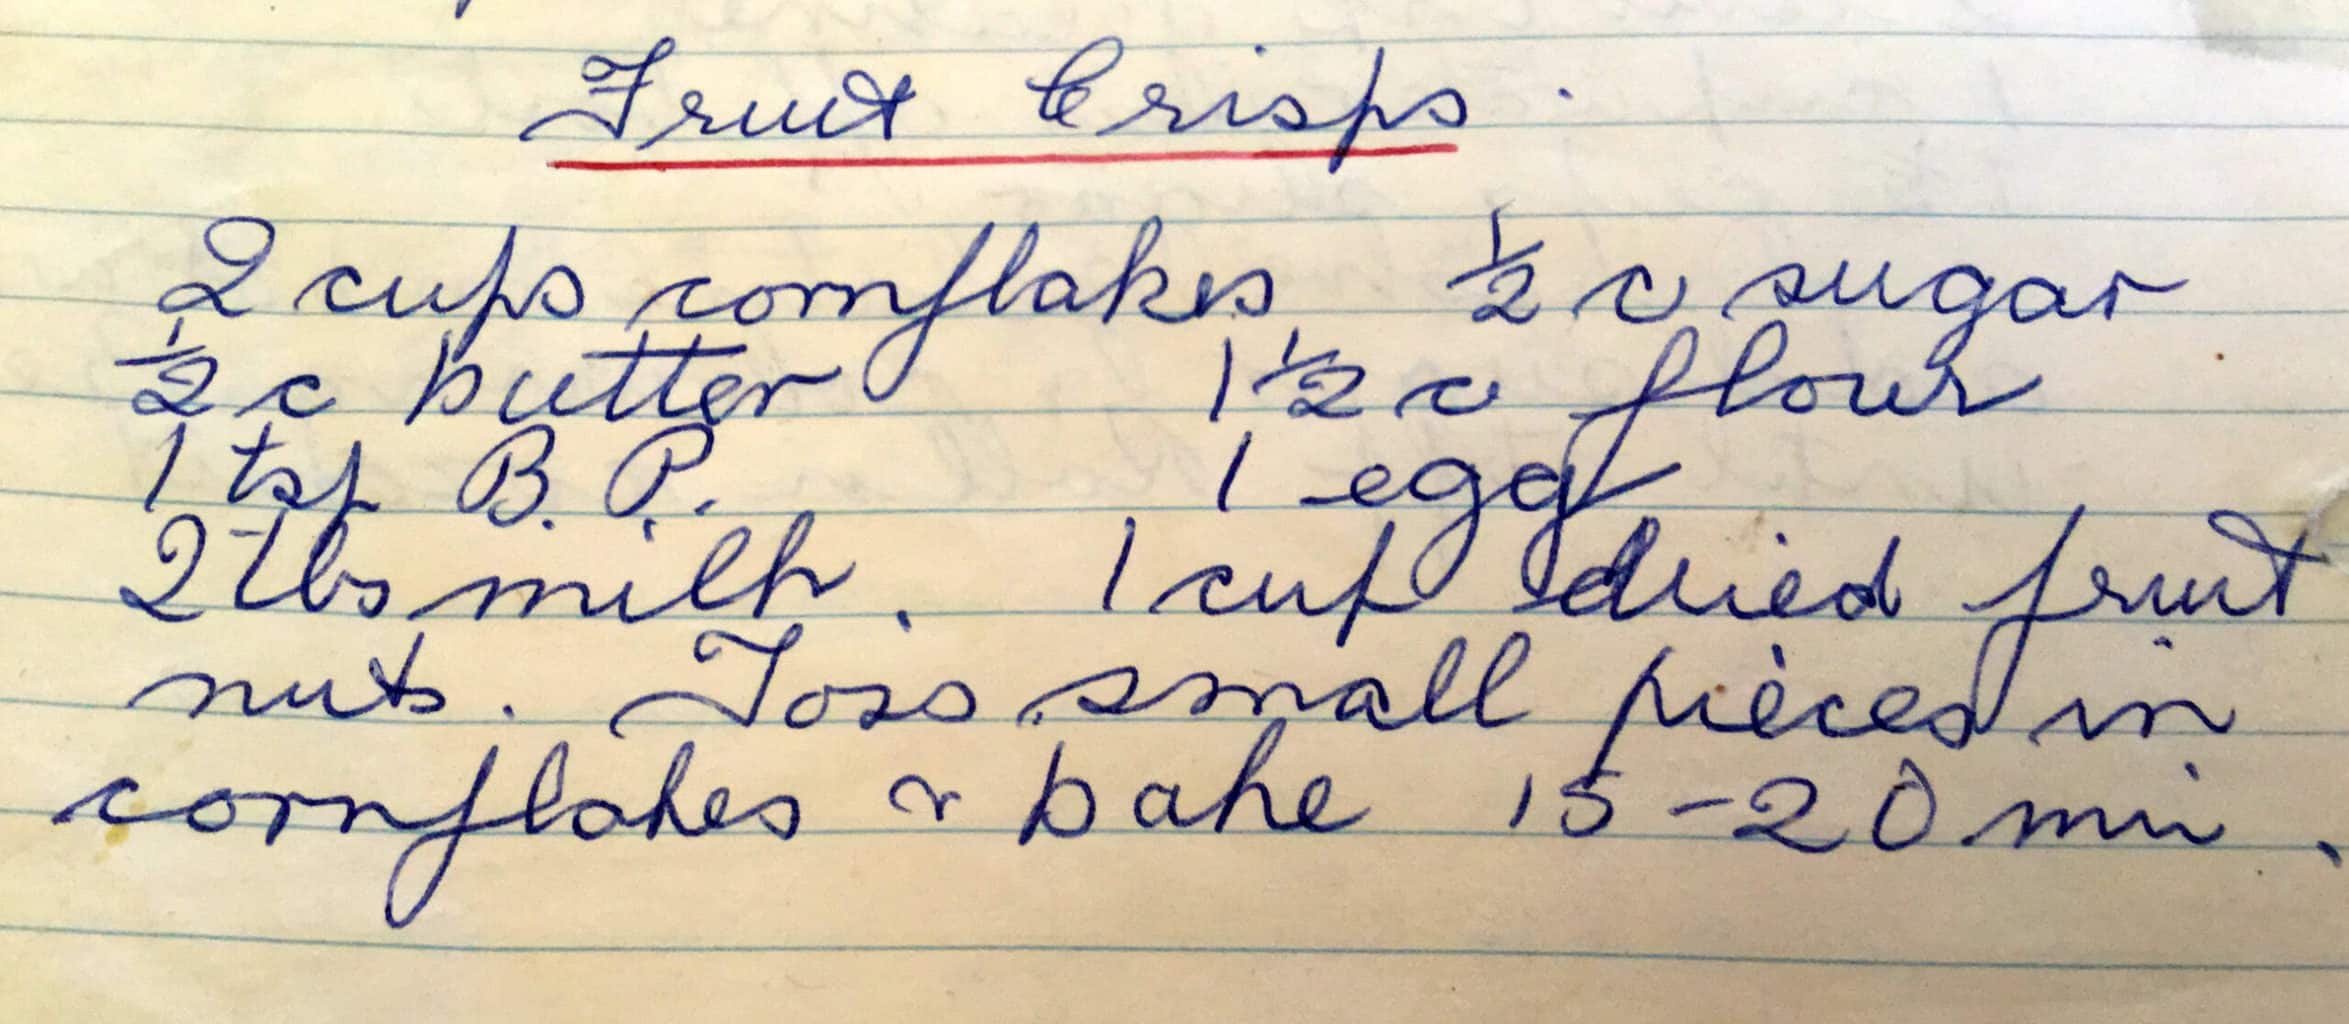 Fruit Crisps.
2 cups cornflakes ½ c sugar
½ c butter 1½ c flour
1 tsp B.P. 1 egg
2 Tbs milk. 1 cup dried fruit
nuts. Toss small pieces in
cornflakes & bake 15-20 min.